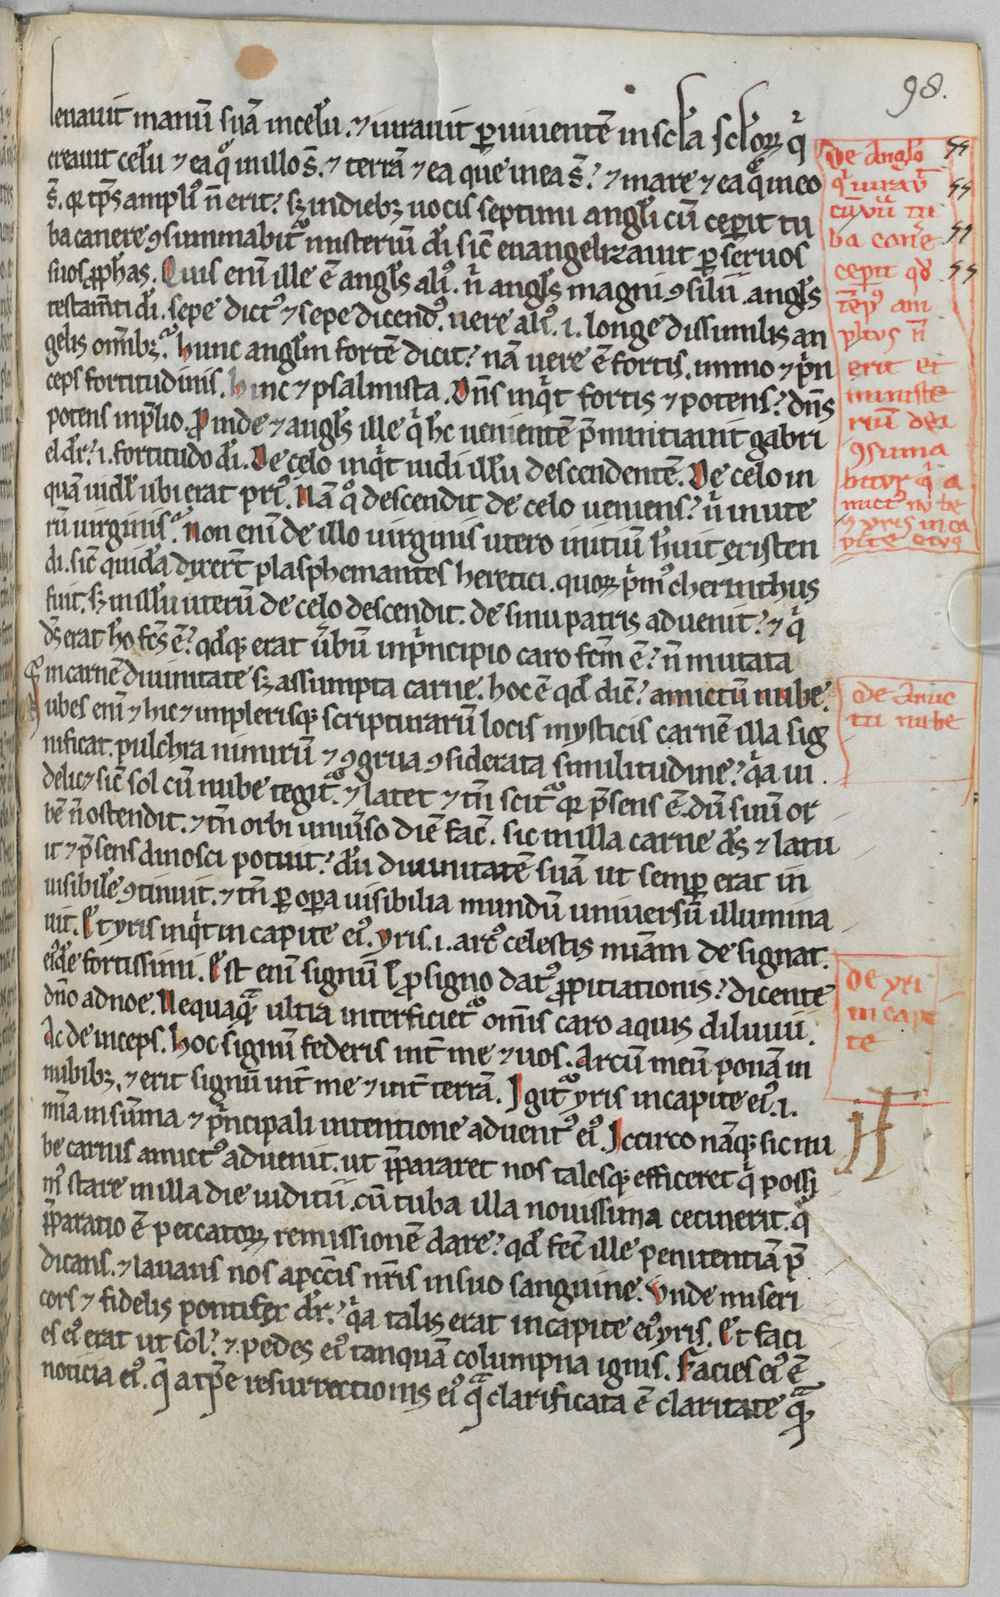 98.
leuauit manū suā in celū. ⁊ iurauit ꝑ uiuentē in scła scłoꝝ q̇
creauit celū ⁊ ea q̊ in illo s̄. ⁊ terrā ⁊ ea que in ea s̄? ⁊ mare ⁊ ea q̊ in eo
s̄. qr tp̄s ampli᷒ n̄ erit? sꝫ in diebꝫ uocis septimi angłi cū ceꝑit tu
ba canere ꝯsummabit᷒ misteriū dī sic̄ euangelizauit ꝑ seruos
suos ꝓphas. Quis enī ille ē angłs ali᷒. n̊ angłs magni ꝯsilii. angłs
testam̄ti dī. sepe dict᷒ ⁊ sepe dicend᷒. uere ali᷒. i. longe dissimilis an
gelis om̄ibꝫ. Hunc angłm fortē dicit? nā uere ē fortis. immo ⁊ p̊n
ceps fortitudinis. Hinc ⁊ psalmista. Dn̄s inq̇t fortis ⁊ potens? dn̄s
potens in p̄lio. Proinde ⁊ angłs ille q̇ hc̄ uenientē p̄nuntiauit gabri
el dr̄? i. fortitudo dī. De celo inq̇t uidi illū descendentē. De celo in
quā uidi ł ubi erat pri᷒. Nā q̊ descendit de celo ueniens? n̊ in ute
rū uirginis. Non enī de illo uirginis utero initiū h̄uit exīsten
di. sic̄ quidā dixer̄t plasphemantes heretici. quoꝝ p̊m᷒ cherinthus
fuit. sꝫ in illū uterū de celo descendit. de sinu patris aduenit? ⁊ q̇
ds̄ erat hō fc̄s ē? qd̄qꝫ erat ūbū in p̊ncipio caro fc̄m ē? n̄ mutata
in carnē diuinitate sꝫ assumpta carne. hoc ē qd̄ dic̄? amictū nube.
Nubes enī ⁊ hic ⁊ in plerisqꝫ scripturarū locis mysticis carnē illā sig
nificat. pulchra nimirū ⁊ ꝯgrua ꝯsiderata similitudine? q̇a ui
delic̄ sic̄ sol cū nube tegit᷒. ⁊ latet ⁊ tn̄ scit᷒ qr p̄sens ē. dū suū or
bē n̄ ostendit. ⁊ tn̄ orbi uniuerso diē fac̄. sic in illa carne ds̄ ⁊ latu
it ⁊ p̄sens dinosci potuit? dū diuinitatē suā ut semꝑ erat in
uisibile ꝯtinuit. ⁊ tn̄ ꝑ oꝑa uisibilia mundū uniuersū illumina
uit. Et yris inq̇t in capite ei᷒. Yris. i. arc᷒ celestis mīam designat.
ei᷒dē fortissimi. Est enī signū ł ꝓ signo dat᷒ ꝓpitiationis? dicente
dn̄o ad noe. Nequaquā ultra interficiet᷒ om̄is caro aquis diluuii.
Ac deinceps. Hoc signū federis int̄ me ⁊ uos. Arcū meū ponā in
nubibꝫ. ⁊ erit signū int̄ me ⁊ int̄ terrā. Igit᷒ yris in capite ei᷒. i.
mīa in sūma ⁊ p̊ncipali intentione aduent᷒ ei᷒. Iccirco nāqꝫ sic nu
be carnis amict᷒ aduenit. ut p̄pararet nos talesqꝫ efficeret q̇ possi
m᷒ stare in illa die iuditii. cū tuba illa nouissima cecinerit. q̊
p̄paratio ē peccatoꝝ remissionē dare? qd̄ fec̄ ille penitentiā p̄
dicans. ⁊ lauans nos a pccīs nr̄is in suo sanguine. Unde miseri
cors ⁊ fidelis pontifex dr̄? q̇a talis erat in capite ei᷒ yris. Et faci
es ei᷒ erat ut sol? ⁊ pedes ei᷒ tanquā columpna ignis. Facies ei᷒ ē
noticia ei᷒. q̄ a tp̄e resurrectionis ei᷒ clarificata ē claritate
De Anglo
q̇ iurav̄
cū VII tu
ba canē
cepit qd̄
tēp᷒ am
pli᷒ n̄
erit et
ministe
riū dei
ꝯsuma
bitvr q̇ a
mict᷒ nvbe
⁊ yris in ca
pite eivs
de Amic
tu nube
de yri
in capi
te